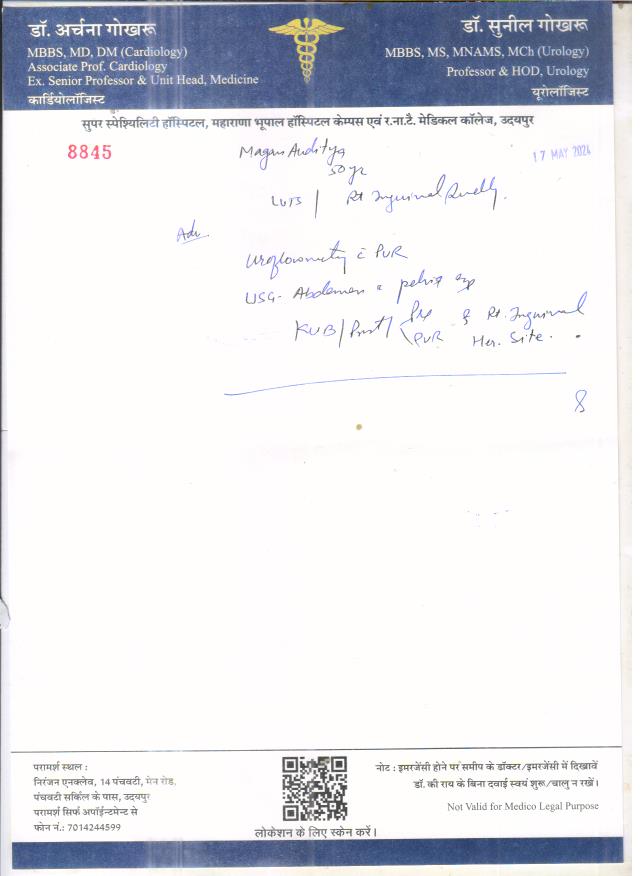 डॉ. अर्चना गोखरू
MBBS, MD, DM (Cardiology)
Associate Prof. Cardiology
Ex. Senior Professor & Unit Head, Medicine
कार्डियोलॉजिस्ट
डॉ. सुनील गोखरू
MBBS, MS, MNAMS, MCh (Urology)
Professor & HOD, Urology
यूरोलॉजिस्ट
सुपर स्पेश्यिलिटी हॉस्पिटल, महाराणा भूपाल हॉस्पिटल केम्पस एवं र.ना.टै. मेडिकल कॉलेज, उदयपुर
8845
17 MAY 2024
Magan Auditya
50 yr
LUTS / Rt Inguinal
Adv.
Uroflowmetry c PUR
USG- Abdomen & pelvis
KUB / Prost / Pre & Rt. Inguinal
PVR Her. Site.
परामर्श स्थल :
निरंजन एनक्लेव, 14 पंचवटी, मेन रोड,
पंचवटी सर्किल के पास, उदयपुर
परामर्श सिर्फ अपॉईन्टमेन्ट से
फोन नं.: 7014244599
लोकेशन के लिए स्केन करें।
नोट : इमरजेंसी होने पर समीप के डॉक्टर/इमरजेंसी में दिखावें
डॉ. की राय के बिना दवाई स्वयं शुरू/चालु न रखें।
Not Valid for Medico Legal Purpose